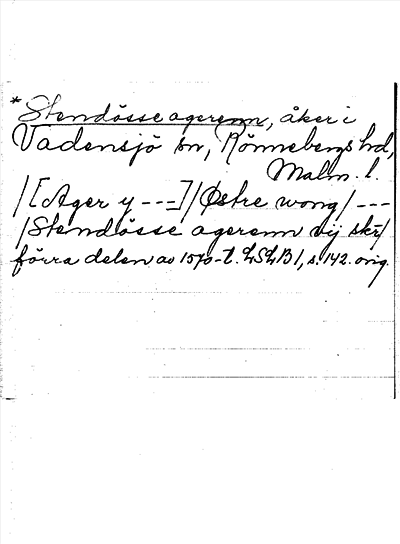 *Stendösse agerenn, åker i
Vadensjö sn, Rönnebergs hd,
Malm. l.
/[Ager y ---]/ Østre wong/ ---
/Stendösse agerenn vij skr/
förra delen av 1570-t. LSLB 1, s. 142. orig.